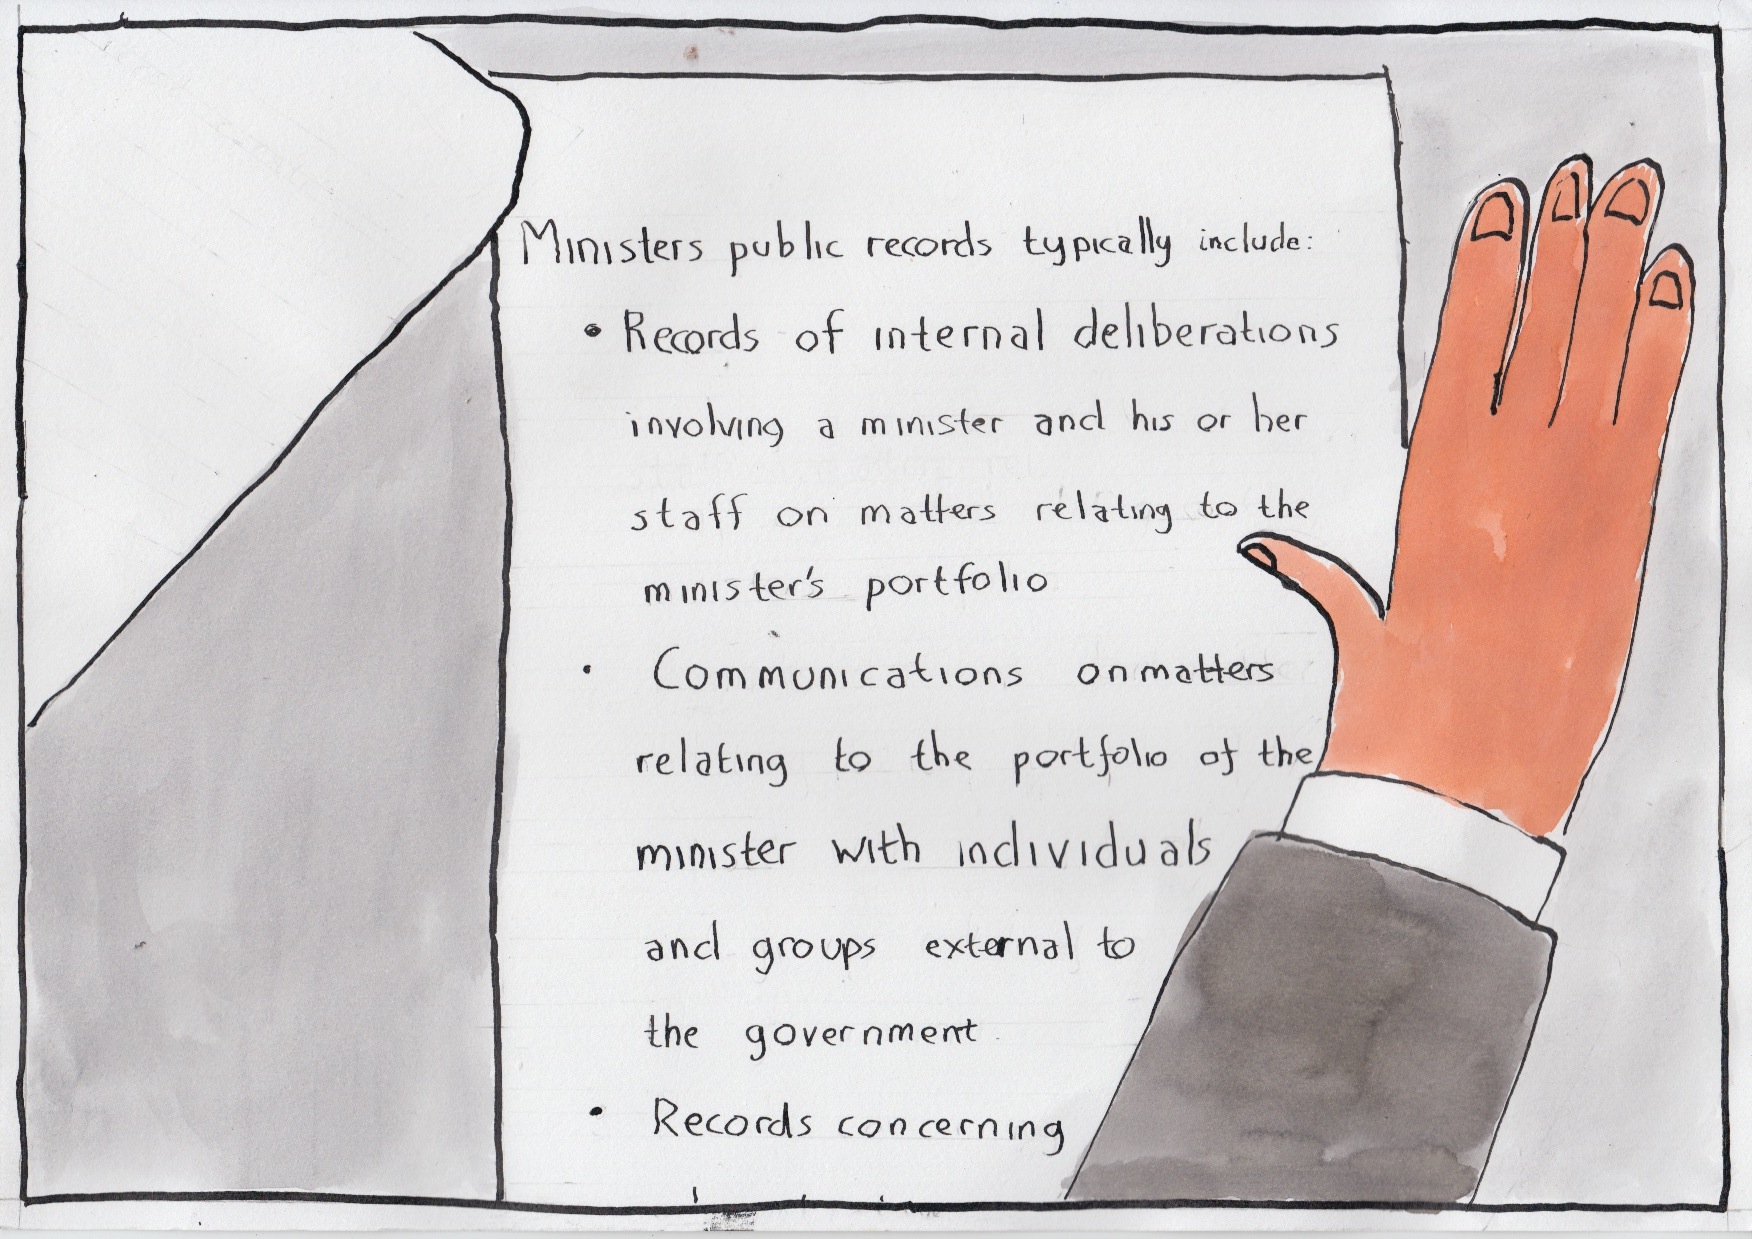 Ministers public records typically include:
• Records of internal deliberations
involving a minister and his or her
staff on matters relating to the
minister's portfolio
• Communications on matters
relating to the portfolio of the
minister with individuals
and groups external to
the government
• Records concerning